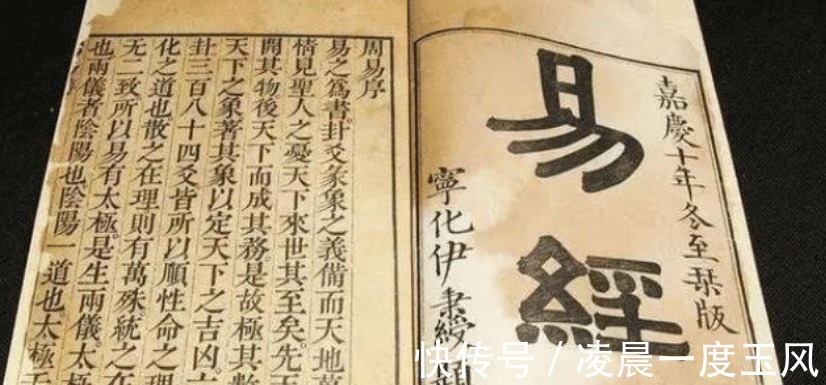 嘉慶十年冬至栞版
易經
寧化伊秉綬
周易序
易之爲書卦爻彖象之義備而天地萬
情見聖人之憂天下來世其至矣先
開其物後天下而成其務是故極其數
天下之象著其象以定天下之吉凶
卦三百八十四爻皆所以順性命之理
化之道也散之在理則有萬殊統之
无二致所以易有太極是生兩儀太
也兩儀者陰陽也陰陽一道也太極
快传号 / 凌晨一度玉风